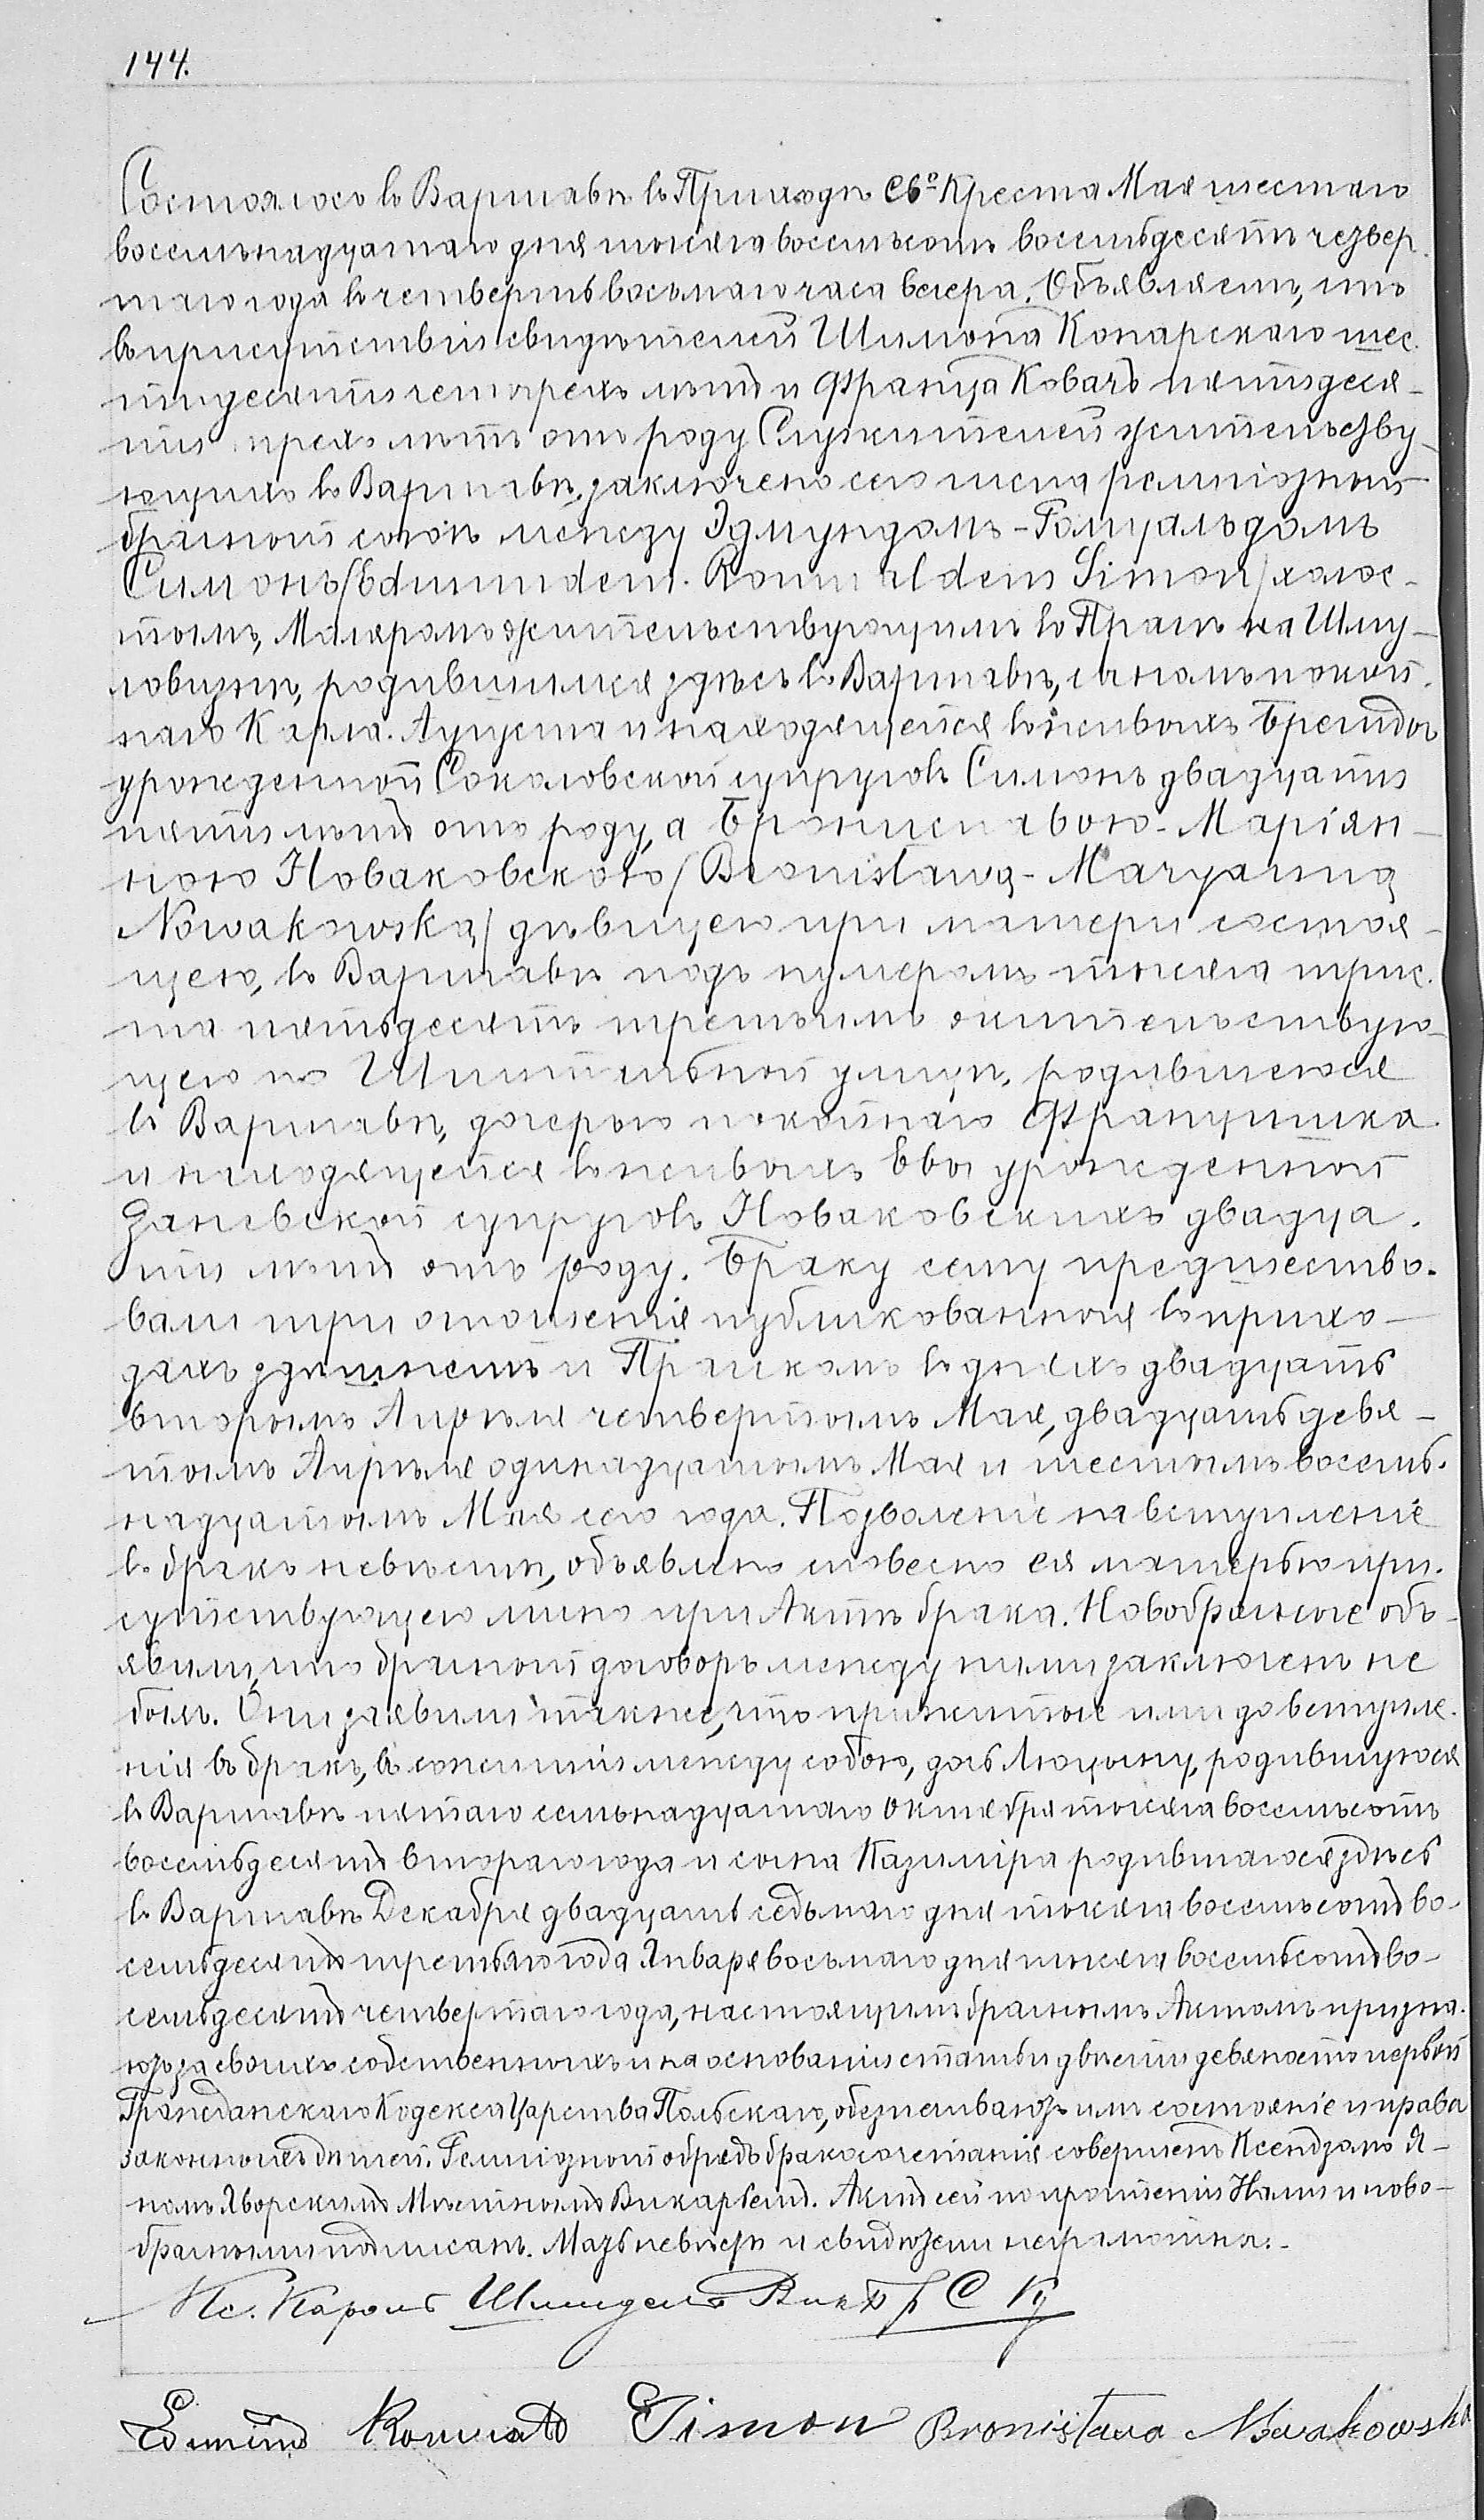 144.
Состоялось въ Варшавѣ въ Приходѣ Св.º Креста Мая шестаго
восемьнадцатаго дня тысяча восемьсотъ восемьдесятъ четвер
таго года въ четверть восьмаго часа вечера. Объявляемъ, что
въ присутствіи свидѣтелей Шимона Конарскаго шес.
тидесяти четырехъ лѣтъ и Францa Ковачъ пятидеся-
ти трехъ лѣтъ отъ роду Служителей жительству-
ющихъ въ Варшавѣ, заключенъ сего числа религіозный
брачный союзъ между Эдмундомъ-Ромуальдомъ
Симонъ /Edmundem. Romualdem Simon/ холос-
тымъ, Маляромъ жительствующимъ въ Прагѣ на Шму-
ловизнѣ, родившимся здѣсь въ Варшавѣ, сыномъ покой.
наго Карла. Августа и находящейся въ живыхъ Бригиды
урожденной Соколовской супруговъ Симонъ двадцати
пяти лѣтъ отъ роду, а Брониславою-Маріян-
ною Новаковскою /Bronisławą-Maryanną
Nowakowską/ дѣвицею при матери состоя-
щею, въ Варшавѣ подъ нумеромъ тысяча трис.
та пятьдесятъ третьимъ жительствую-
щею по Шпитальной улицѣ, родившеюся
въ Варшавѣ, дочерью покойнаго Францишка
и находящейся въ живыхъ Евы урожденной
Заневской супруговъ Новаковскихъ двадца.
ти лѣтъ отъ роду. Браку сему предшество.
вали три оглашенія публикованныя въ прихо-
дахъ здѣшнемъ и Пражскомъ въ дняхъ двадцать
второмъ Апрѣля четвертомъ Мая, двадцать девя-
томъ Апрѣля одинадцатомъ Мая и шестомъ восемь.
надцатомъ Мая сего года. Позволеніе на вступленіе
въ бракъ невѣстѣ, объявлено словесно ея матерью при.
сутствующею лично при Актѣ брака. Новобрачные объ-
явили, что брачный договоръ между ними заключенъ не
былъ. Они заявили также, что прижитые ими до вступле.
нія въ бракъ, въ сожитіи между собою, дочь Люцыну, родившуюся
въ Варшавѣ пятаго семьнадцатаго Октября тысяча восемьсотъ
восемьдесятъ втораго года и сына Казиміра родившагося здѣсь
въ Варшавѣ Декабря двадцать седьмаго дня тысяча восемьсотъ во-
семьдесятъ третьяго года Января восьмаго дня тысяча восемьсотъ во-
семьдесятъ четвертаго года, настоящимъ брачнымъ Актомъ призна.
ютъ за своихъ собственныхъ и на основаніи статьи двѣсти девяносто первой
Гражданскаго Кодекса Царства Польскаго, обезпечиваютъ имъ состояніе и права
законныхъ дѣтей. Религіозный обрядъ бракосочетанія совершенъ Ксендзомъ Я-
номъ Яворскимъ Мѣстнымъ Викаріемъ. Актъ сей по прочтеніи Нами и ново-
брачными подписанъ. Мать невѣсты и свидѣтели неграмотны.-
Кс. Кароль Шмидель Вик П С Кр
Edmund Romuald Simon Bronisława Nowakowska